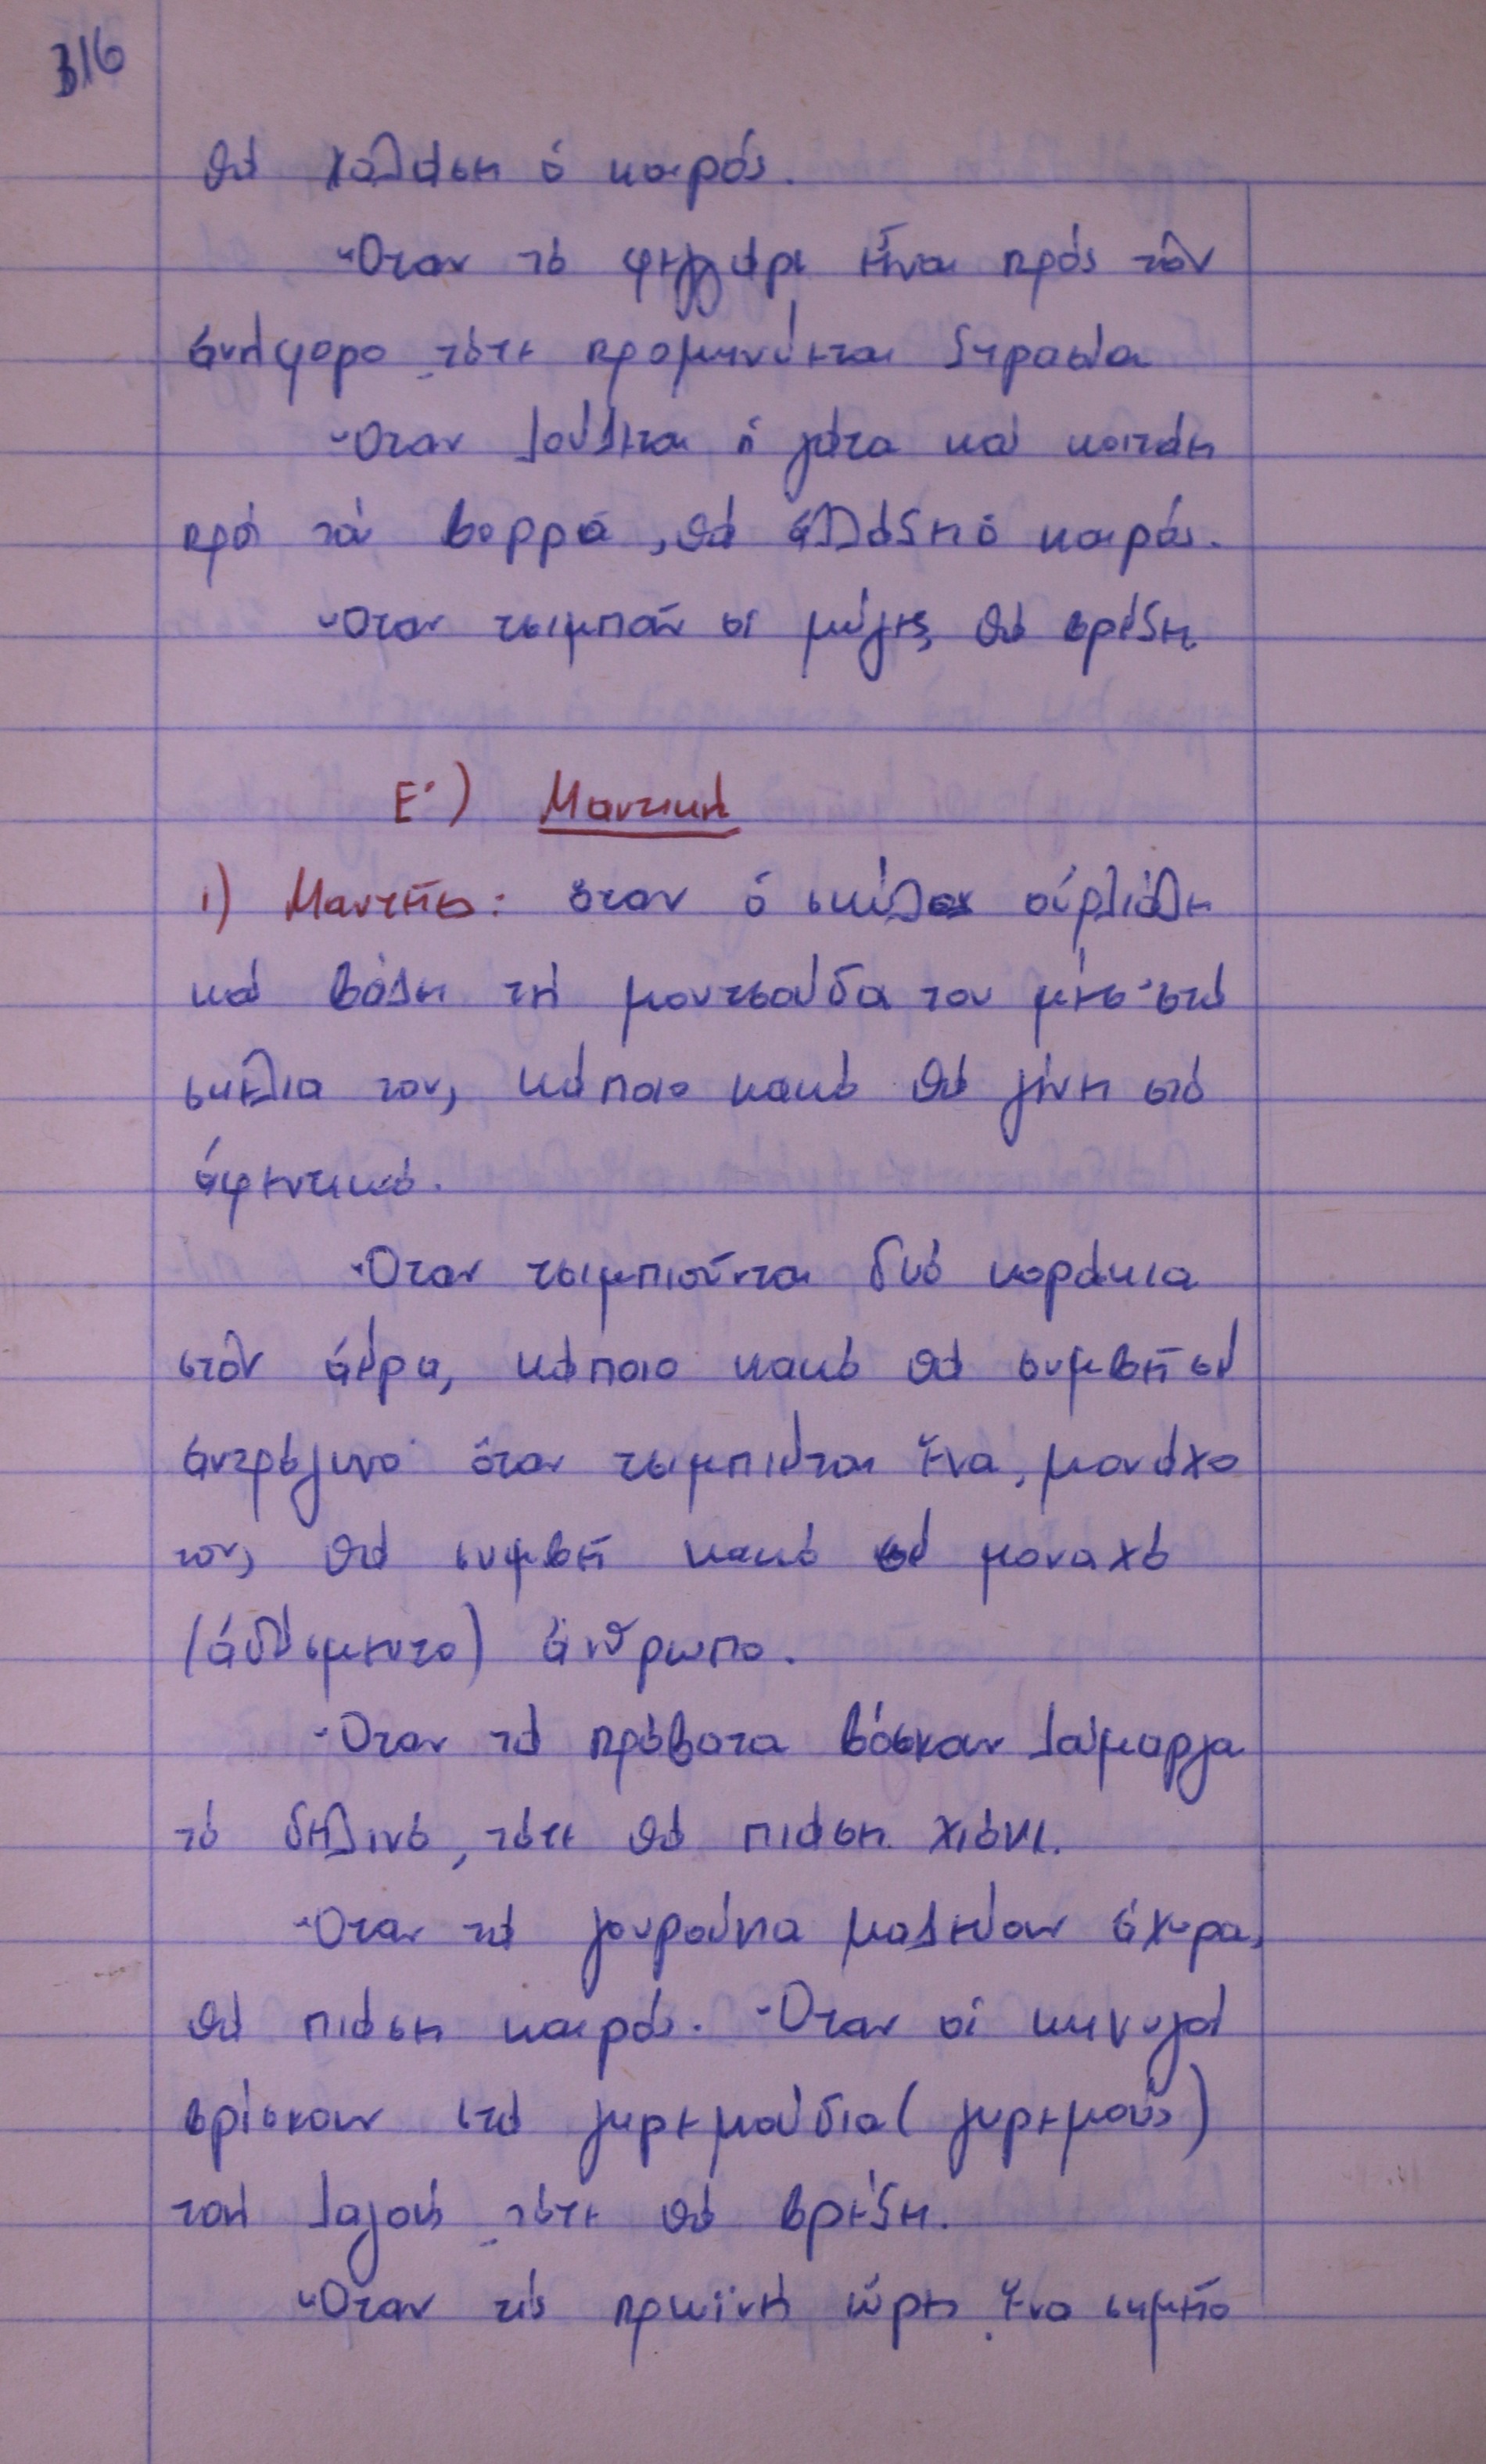 316
θά χαλάση ὁ καιρός.
Ὅταν τό φεγγάρι εἶναι πρός τόν
ἀνήφορο, τότε προμηνύεται ξηρασία
Ὅταν λούζεται ἡ γάτα καί κοιτάη
πρός τόν βορρά, θά ἀλλάξη ὁ καιρός.
Ὅταν τσιμπᾶν οἱ μύγες, θά βρέξη.
Ε΄) Μαντική
1) Μαντεῖες: ὅταν ὁ σκύλος οὐρλιάζη
καί βάζη τή μουτσούδα του μέσ' στά
σκέλια του, κάποιο κακό θά γίνη στό
ἀφεντικό.
Ὅταν τσιμπιοῦνται δυό κοράκια
στόν ἀέρα, κάποιο κακό θά συμβῆ σέ
ἀντρόγυνο· ὅταν τσιμπιέται ἕνα, μονάχο
του, θά συμβῆ κακό σέ μοναχό
(ἀδέσμευτο) ἄνθρωπο.
Ὅταν τά πρόβατα βόσκουν λαίμαργα
τό δειλινό, τότε θά πιάση χιόνι.
Ὅταν τά γουρούνια μαζεύουν ἄχυρα,
θά πιάση καιρός. Ὅταν οἱ κυνηγοί
βρίσκουν στά γκρεμούδια (γκρεμούς)
τούς λαγούς, τότε θά βρέξη.
Ὅταν τίς πρωϊνές ὧρες, ἕνα σημεῖο